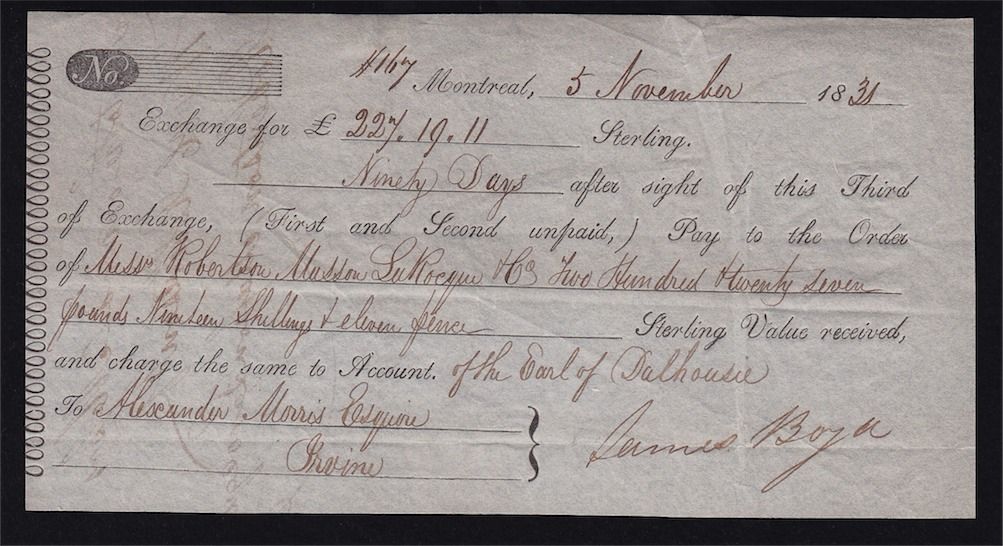 No.
#167 Montreal, 5 November 1831
Exchange for £ 227.19.11 Sterling.
Ninety Days after sight of this Third
of Exchange, (First and Second unpaid,) Pay to the Order
of Messrs Robertson Masson LaRocque & Co Two Hundred & twenty seven
pounds Nineteen Shillings & eleven pence Sterling Value received,
and charge the same to Account. of the Earl of Dalhousie
To Alexander Morris Esquire
Irvine
James